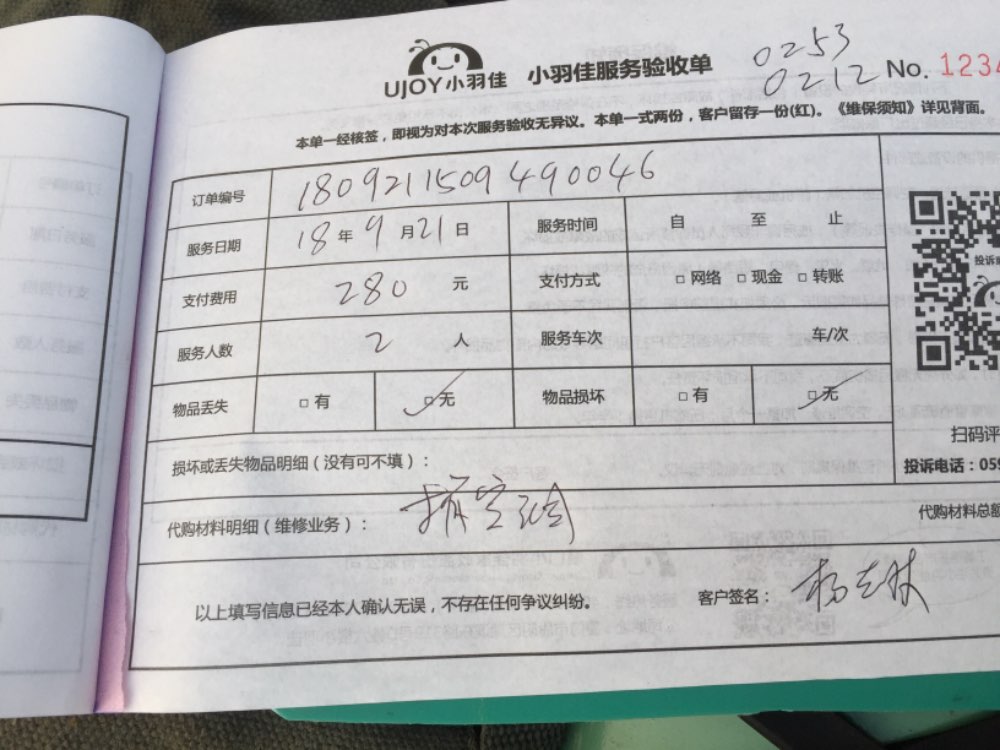 0253
UJOY小羽佳 小羽佳服务验收单 0212 No. 1234
本单一经核签，即视为对本次服务验收无异议。本单一式两份，客户留存一份(红)。《维保须知》详见背面。
订单编号 180921150949 0046
服务日期 18 年 9 月 21 日 服务时间 自 至 止
支付费用 280 元 支付方式 □ 网络 □ 现金 □ 转账
服务人数 2 人 服务车次 车/次
物品丢失 □ 有 ✓□ 无 物品损坏 □ 有 ✓□ 无
扫码评
损坏或丢失物品明细（没有可不填）：
投诉电话：059
代购材料明细（维修业务）：
代购材料总额
以上填写信息已经本人确认无误，不存在任何争议纠纷。 客户签名：